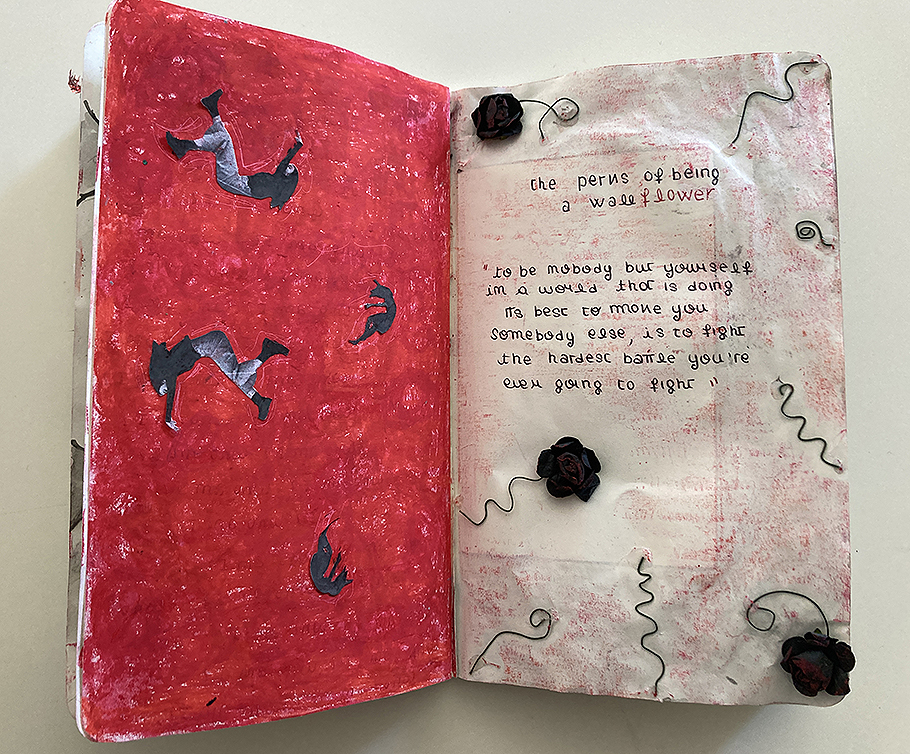 the perks of being
a wallflower
"to be nobody but yourself
in a world that is doing
its best to make you
somebody else, is to fight
the hardest battle you're
ever going to fight "